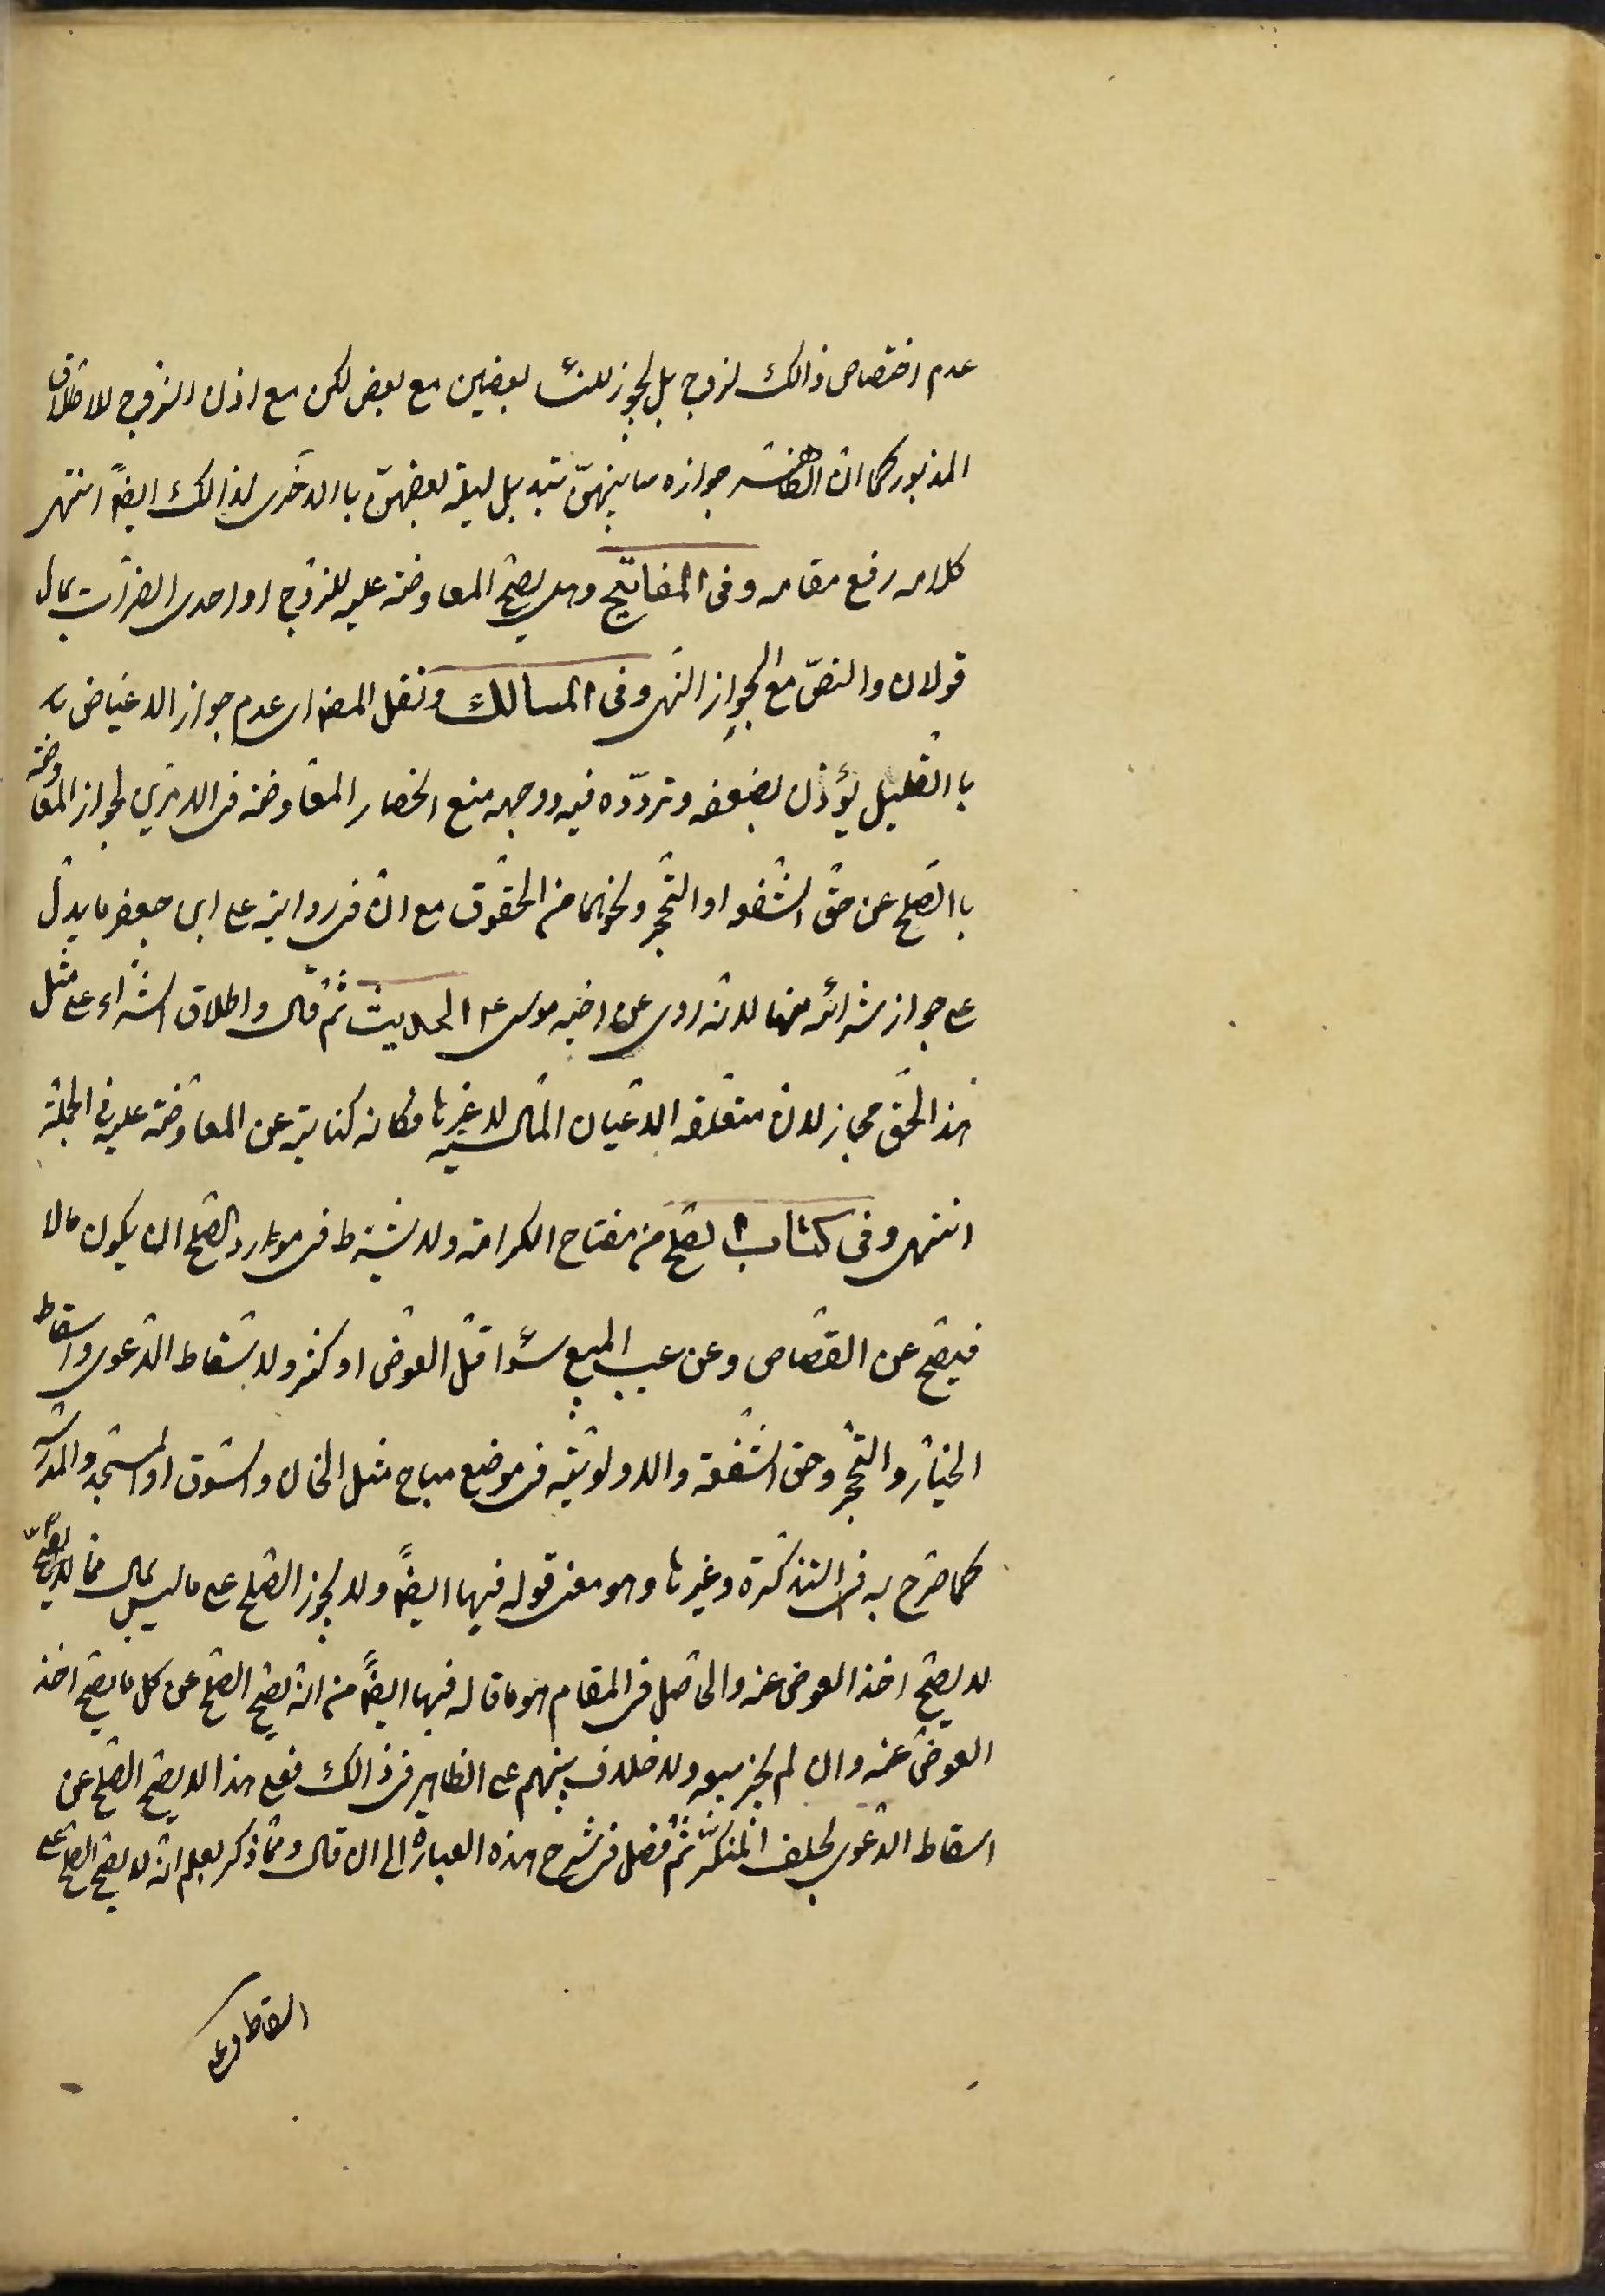 عدم اختصاص ذالك لزوج بل يجوز للنساء بعضهن مع بعض لكن مع اذن الزوج للاطلاق
المذبور كما ان الظاهر جوازه ما بينهنّ بتبديل ليلة بعضهنّ باالاخرى لذالك ايضاً انتهى
كلامه رفع مقامه وفى المفاتيح وهل يصحّ المعاوضة عليه للزوج او احدى الضرّات بمال
قولان والنصّ مع الجواز انتهى وفى المسالك ونقل المصـ اى عدم جواز الاعتياض
باالقليل يؤذن بضعفه وتردّده فيه ووجهه منع انحصار المعاوضة فى الامرين لجواز المعاوضة
باالصّلح عن حقّ الشفعه او التحجر ونحوهما من الحقوق مع انّ فى رواية على ابن جعفر ما يدلّ
على جواز شرائه منها لانّه روى عن اخيه موسى ع الحديث ثمّ قال واطلاق الشراء على مثل
هذا الحقّ مجاز لانّ متعلقه الاعيان الماليه لا غيرها فكانه كناية عن المعاوضة عليه فى الجملة
انتهى وفى كتاب الصّلح من مفتاح الكرامة ولا يشترط فى موارد الصّلح ان يكون مالا
فيصحّ عن القصاص وعن عيب المبيع سواء قلّ العوض او كثر ولاسقاط الدّعوى واسقاط
الخيار والتحجّر وحق الشفعة والاولويّة فى موضع مباح مثل الخان والسّوق او المسجد والمدرسة
كما صرّح به فى التذكرة وغيرها وهو معنى قوله فيها ايضاً ولا يجوز الصّلح على ما ليس بمال ممّا
لا يصحّ اخذ العوض عنه والحاصل فى المقام هو ما قاله فيها ايضاً من انّه يصحّ الصّلح عن كلّ ما يصحّ اخذ
العوض عنه وان لم يجز بيعه ولا خلاف بينهم على الظاهر فى ذالك فعلى هذا لا يصحّ الصّلح عن
اسقاط الدّعوى بحلف المنكر ثمّ فصل فى شرح هذه العبارة الى ان قال وممّا ذكر يعلم انّه لا يصحّ الصّلح على
اسقاط